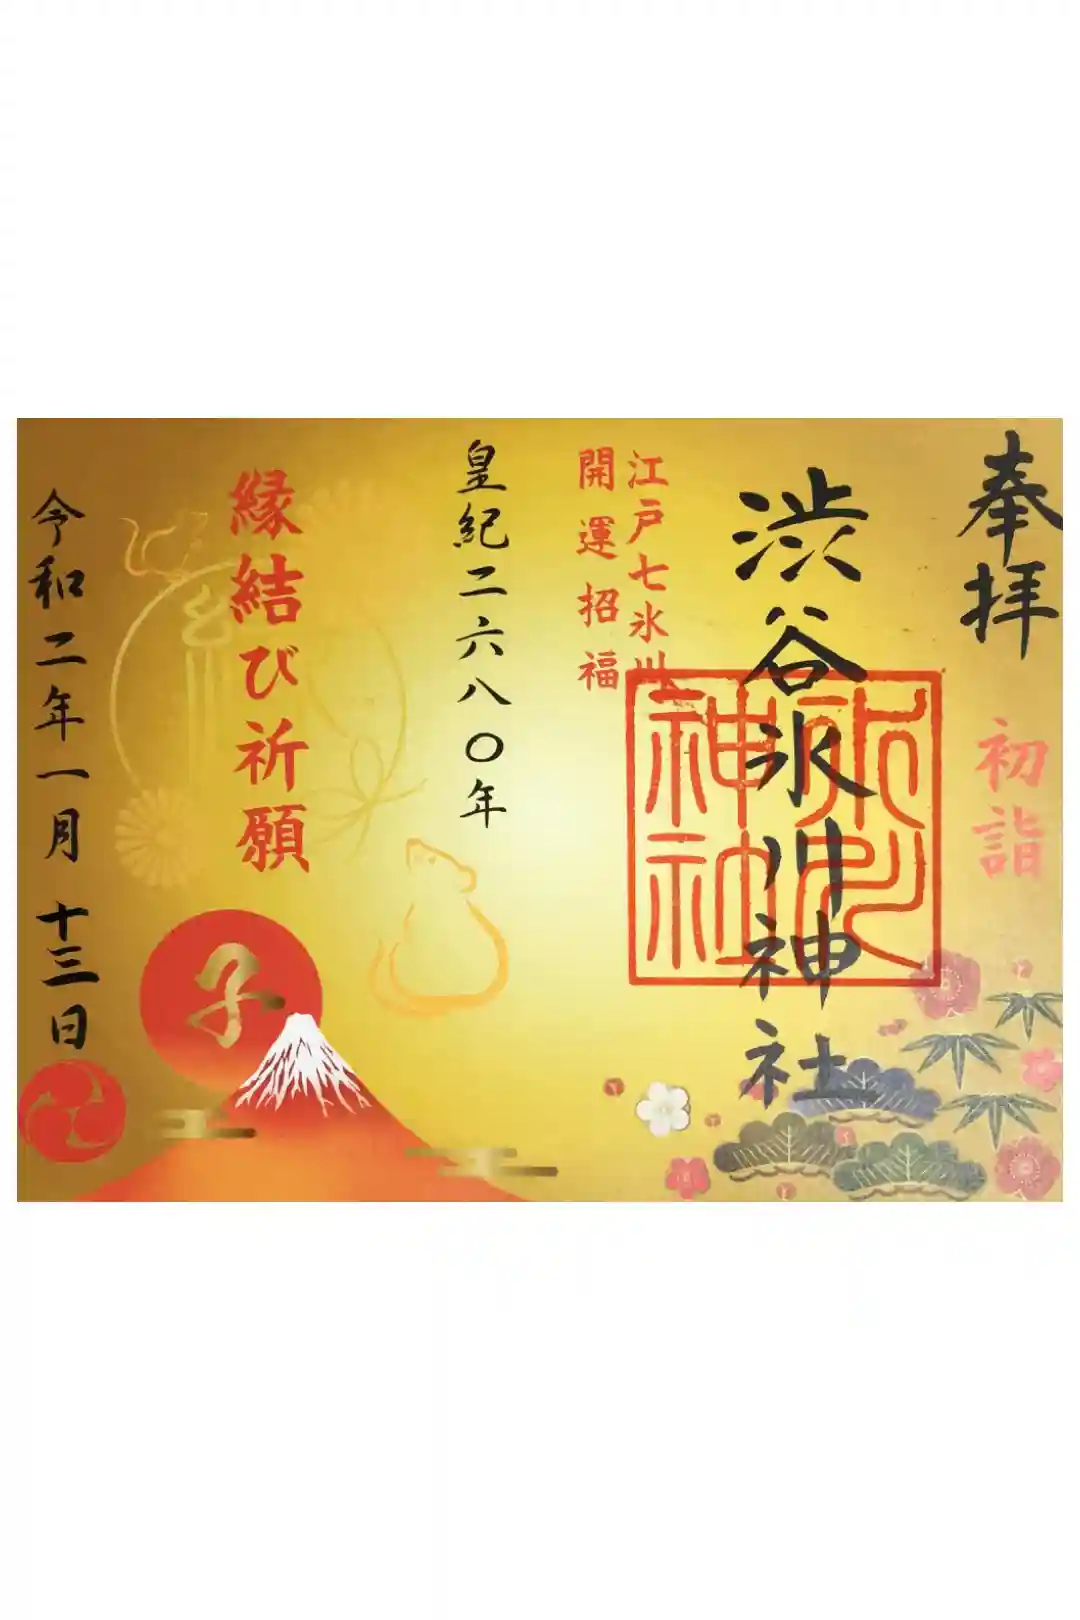 奉拝
初詣
渋谷氷川神社
氷川神社
江戸七氷川
開運招福
皇紀二六八〇年
縁結び祈願
子
令和二年一月十三日